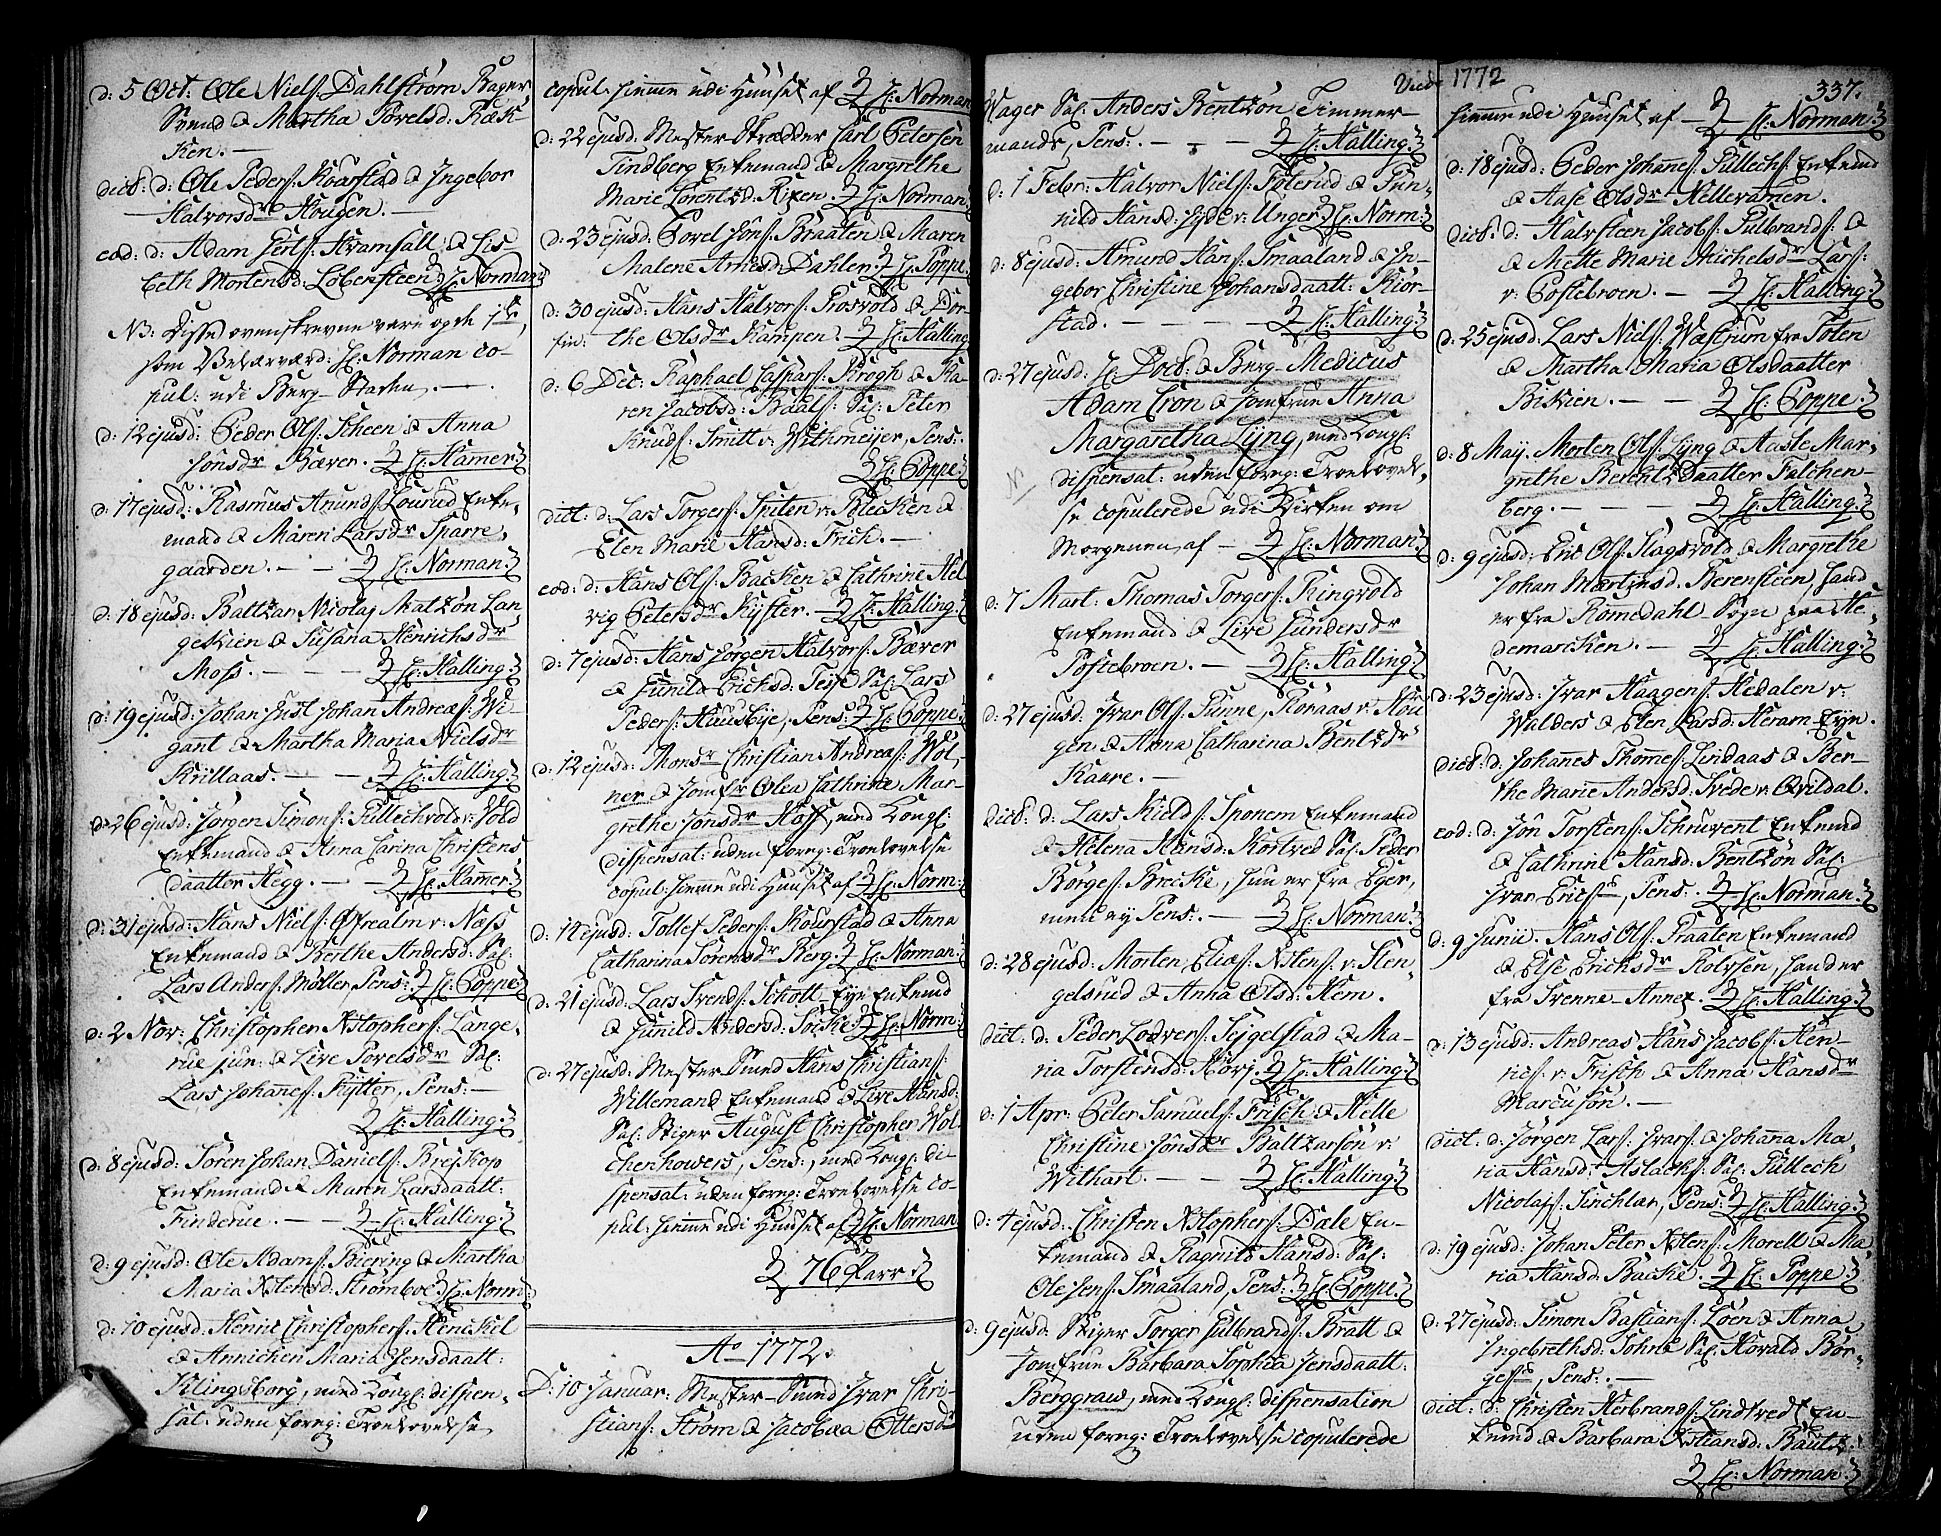 d: 5 Oct: Ole Niels: Dahlstrøm Bager
Svend & Martha Povelsd: Ræk-
ken. —
dict: d: Ole Peders: Kværstad & Ingebor
Halvorsdr Hougen. —
eod: d: Adam Gerts: Kramfall & Lis
beth Mortensd: Løbensteen. H: Norman
NB: Disse ovenskrevne vare og de 1te,
som Velærværd: H: Norman co-
pul: udi Berg-Starhn,. —
d: 12 ejusd: Peder Ols: Scheen & Anna
Jonsdr Bæver. H: Hamer.
d: 17 ejusd: Rasmus Amunds: Lourud Enke-
mand & Maren Larsdr Sparre,
gaarden. — — H: Norman.
d: 18 ejusd: Baltzar Nicolaj Matzøn Lan
gekien & Susana Henrichsdr
Moss. — — — H: Halling.
d: 19 ejusd: Johan Just Johan Andreæs: Wi-
gant & Martha Maria Nielsdr
Krillaas. — — H: Halling.
d: 26 ejusd: Jørgen Simons: Tullechvold v: Vold
Enkemand & Anna Carina Christens
daatter Hegg. — — H: Hamer.
d: 31 ejusd: Hans Niels: Øfrealm v: Næss
Enkemand & Berthe Anders: Sal:
Lars Anders: Møller, Pens: H: Poppe
d: 2 Nov: Christopher Xstophers: Lange-
rue jun: & Live Povelsdr Sal:
Lars Johanes: Rytter, Pens: —
H: Halling.
d: 8 ejusd: Søren Johan Daniels: Breskop
Enkemand & Maren Larsdaatt:
Finderue. — — H: Halling.
d: 9 ejusd: Ole Adams: Biering & Martha
Maria Xstensd: Stromboe. H: Norm:
d: 10 ejusd: Henric Christophers: Henckel
& Annichen Maria Jensdaatt:
Klingsborg, med Kongl: dispen-
sat: uden forng: Troelovelse
copul: hieme udi Huuset af H: Norman
d: 22 ejusd: Mester Skrædder Carl Petersen
Tindberg Enkemand & Margrethe
Marie Lorentzd: Kixen. H: Norman.
d: 23 ejusd: Povel Jøns: Braaten & Maren
Malene Arnesd: Dahlen. H: Poppe.
d: 30 ejusd: Hans Halvors: Prosvold & Dor-
the Olsdr Kampen. H: Halling
fin:
d: 6 Dec: Raphael Caspars: Krogh & Ka-
ren Jacobsd: Baals: Sal: Peter
Knuds: Smitt v: Withmeijer, Pens:
H: Poppe
dict: d: Lars Torgers: Spiten v: Blecken &
Elen Marie Hansd: Frich. —
eod: d: Hans Ols: Backen & Cathrine Hel
vig Petersdr Kyster. — H: Halling.
d: 7 ejusd: Hans Jørgen Halvors: Bæver
& Gunild Erichsd: Teise Sal: Lars
Peders: Hausbye, Pens: H: Poppe.
d: 12 ejusd: Monsr Christian Andreæs: Wol,
ner & Jomfr Olea Cathrine Mar-
grethe Jonsdr Hoff, med Kongl:
dispensat: uden forng: Troelovelse
copul: hieme udi Huuset af H: Norm:
d: 14 ejusd: Tollef Peders: Kourstad & Anna
Catharina Sørensdr Berg. H: Norman.
d: 21 ejusd: Lars Svends: Schott-Eijn Enkemd
& Gunild Andersd: Socke. H: Norm:
d: 27 ejusd: Mester Smed Hans Christians:
Willemand Enkemand & Live Hansd:
Sal: Stiger August Christopher Wol-
chenhowers, Pens:, med Kongl: di-
spensat: uden forng: Troelovelse co-
pul: hieme udi Huuset af H: Norman
76 Parr
Ao 1772.
D: 10 Januar: Mester-Smed Ivar Chri-
stians: Strøm & Jacobaa Ottersdr
Wager Sal: Anders Bentzøn Timmer-
mands, Pens: — — H: Halling.
d: 1 Febr: Halvor Niels: Toterud & Gun-
nild Hansd: Hyde v: Unger. H: Norm:
d: 8 ejusd: Amund Hans: Smaaland & In-
gebor Christine Johansdaatt: Kior-
stad. — — — H: Halling.
d: 27 ejusd: H: Doct: & Berg-Medicus
Adam Cron & Jomfrue Anna
Margaretha Lyng, med Kongl:
dispensat: uden forng: Troelovel-
se copulerede udi Kirken om
Morgenen af — H: Norman.
d: 7 Mart: Thomas Torgers: Ringvold
Enkemand & Live Gundersdr
Postebroen. — H: Halling.
d: 27 ejusd: Ivar Ols: Punne, Røraas v: Hou
gen & Anna Catharina Bentzdr
Kaare. —
dict: d: Lars Kields: Sponem Enkemand
& Helena Hansd: Kortved Sal: Peder
Børges: Brecke, hun er fra Eger,
men ey Pens: — H: Norman.
d: 28 ejusd: Morten Elias: Xstens: v: Sten-
gelsrud & Anna Olsd: Hem.
dict: d: Peder Lodvers: Teigelstad & Ma-
ria Torstensd: Korj. H: Halling.
d: 1 Apr: Peter Samuels: Frisch & Helle
Christine Jønsdr Baltzarsøn v:
Withart. — — H: Halling.
d: 4 ejusd: Christen Xstophers: Dale En-
kemand & Ragnild Hansd: Sal:
Ole Jens: Smaaland, Pens: H: Poppe.
d: 9 ejusd: Stiger Torger Gulbrands: Bratt &
Jomfrue Barbara Sophia Jensdaatt:
Berggraw, med Kongl: dispensation
uden forng: Troelovelse copulerede
Vied 1772
337.
hieme udi Huuset af — H: Norman.
d: 18 ejusd: Peder Johanes: Tullechs: Enkemd
& Aase Olsdr Hellevatnen.
dict: d: Halvsteen Jacobs: Gulbrands: &
& Mette Marie Michelsdr Lars:
v: Postebroen. — H: Halling.
d: 25 ejusd: Lars Niels: Næstrum fra Toten
& Martha Maria Olsdaatter
Bikien. — — H: Poppe.
d: 8 Maij. Morten Ols: Lyng & Aaste Mar-
grethe Berentz Daatter Falchen-
berg. — — — H: Halling.
d: 9 ejusd: Eric Ols: Hagsvold & Margrethe
Johan Martinsd: Berensteen, hand
er fra Romedahl-Sogn paa He-
demarcken. — H: Halling.
d: 23 ejusd: Ivar Haagens: Hedalen v:
Walders & Elen Larsd: Heram-Eijn.
dict: d: Johanes Thomes: Lindaas & Ber-
the Marie Andersd: Svede v: Qvildal.
eod: d: Jøn Torstens: Schruvent Enkemd
& Cathrine Hansd: Bentzøn Sal:
Ivar Erics:, Pens: H: Norman.
d: 9 Junii. Hans Ols: Praaten Enkemand
& Else Erichsdr Kolvsen, hand er
fra Svenne-Annex. H: Halling.
d: 13 ejusd: Andreas Hans Jacobs: Hen-
rics: v: Frisch & Anna Hansdr
Marcusøn. —
dict: d: Jørgen Lars: Ivars: & Johana Ma-
ria Hansd: Aslachs: Sal: Tullech
Nicolajs: Sinchlar, Pens: H: Halling.
d: 19 ejusd: Johan Peter Xstens: Morell & Ma-
ria Hansd: Backe. H: Poppe.
d: 27 ejusd: Simon Bastians: Løen & Anna
Ingebrethsd: Johns: Sal: Harald Bør-
ges:, Pens: —
dict: d: Christen Herbrands: Lindtvedt En-
kemd & Barbara Xstiansd: Bautz.
H: Norman.